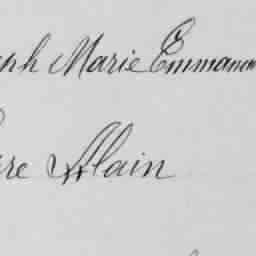 eph Marie Emmanu
re Alain